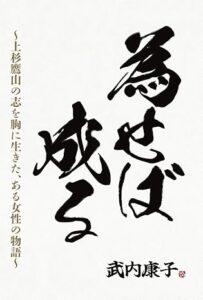 為せば
成る
〜上杉鷹山の志を胸に生きた、ある女性の物語〜
武内康子